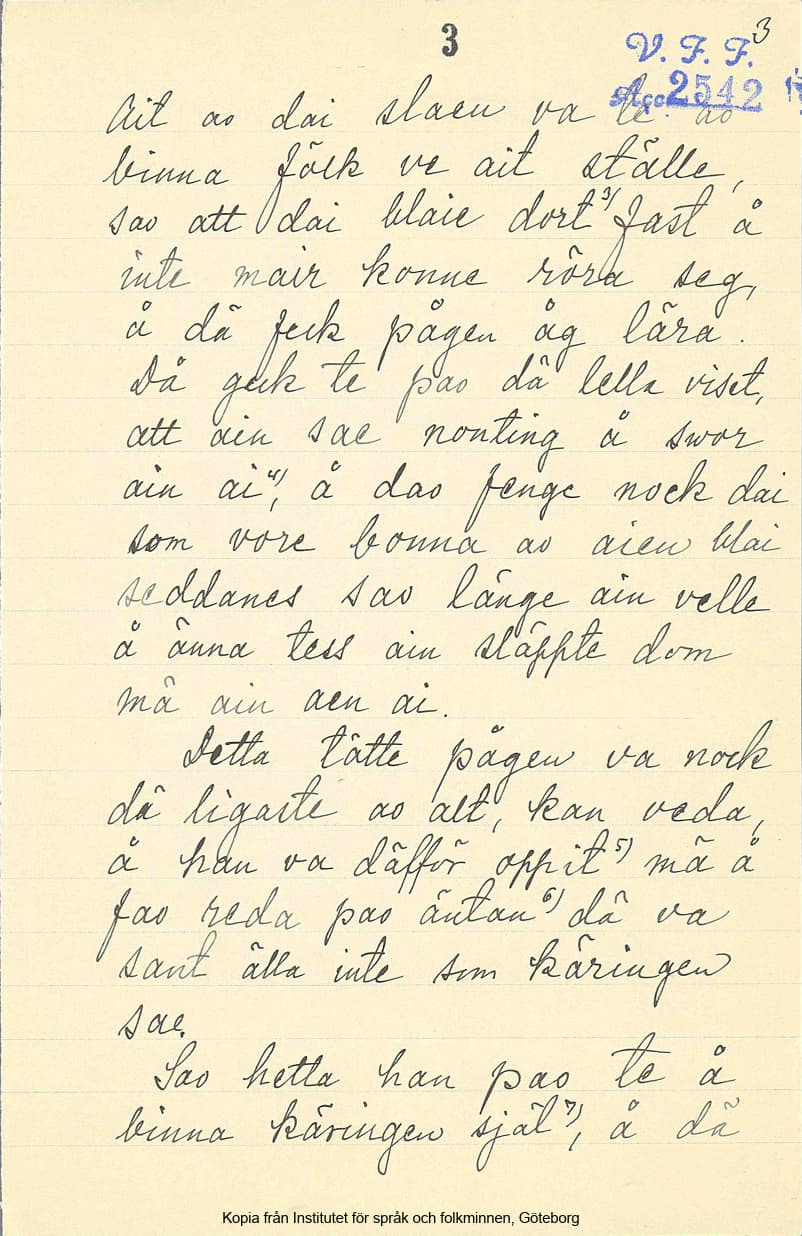 3
3
V. F. F.
Acc 2542
Ait ao dai slaen va te ao
binna fölk ve ait ställe,
sao att dai blaie dort 3) fast å
inte mair konne röra seg,
å dä feck pågen åg lära.
Då geck te pao dä lella viset,
att ain sae nonting å swor
ain ai 4), å dao fenge nock dai
som vore bonna ao aien blai
seddanes sao länge ain velle
å änna tess ain släppte dom
mä ain aen ai.
Detta tötte pågen va nock
dä ligaste ao alt, kan veda,
å han va däfför oppit 5) mä å
fao reda pao äntan 6) dä va
sant älla inte som käringen
sae.
Sao hetta han pao te å
binna käringen själ 7), å dä
Kopia från Institutet för språk och folkminnen, Göteborg